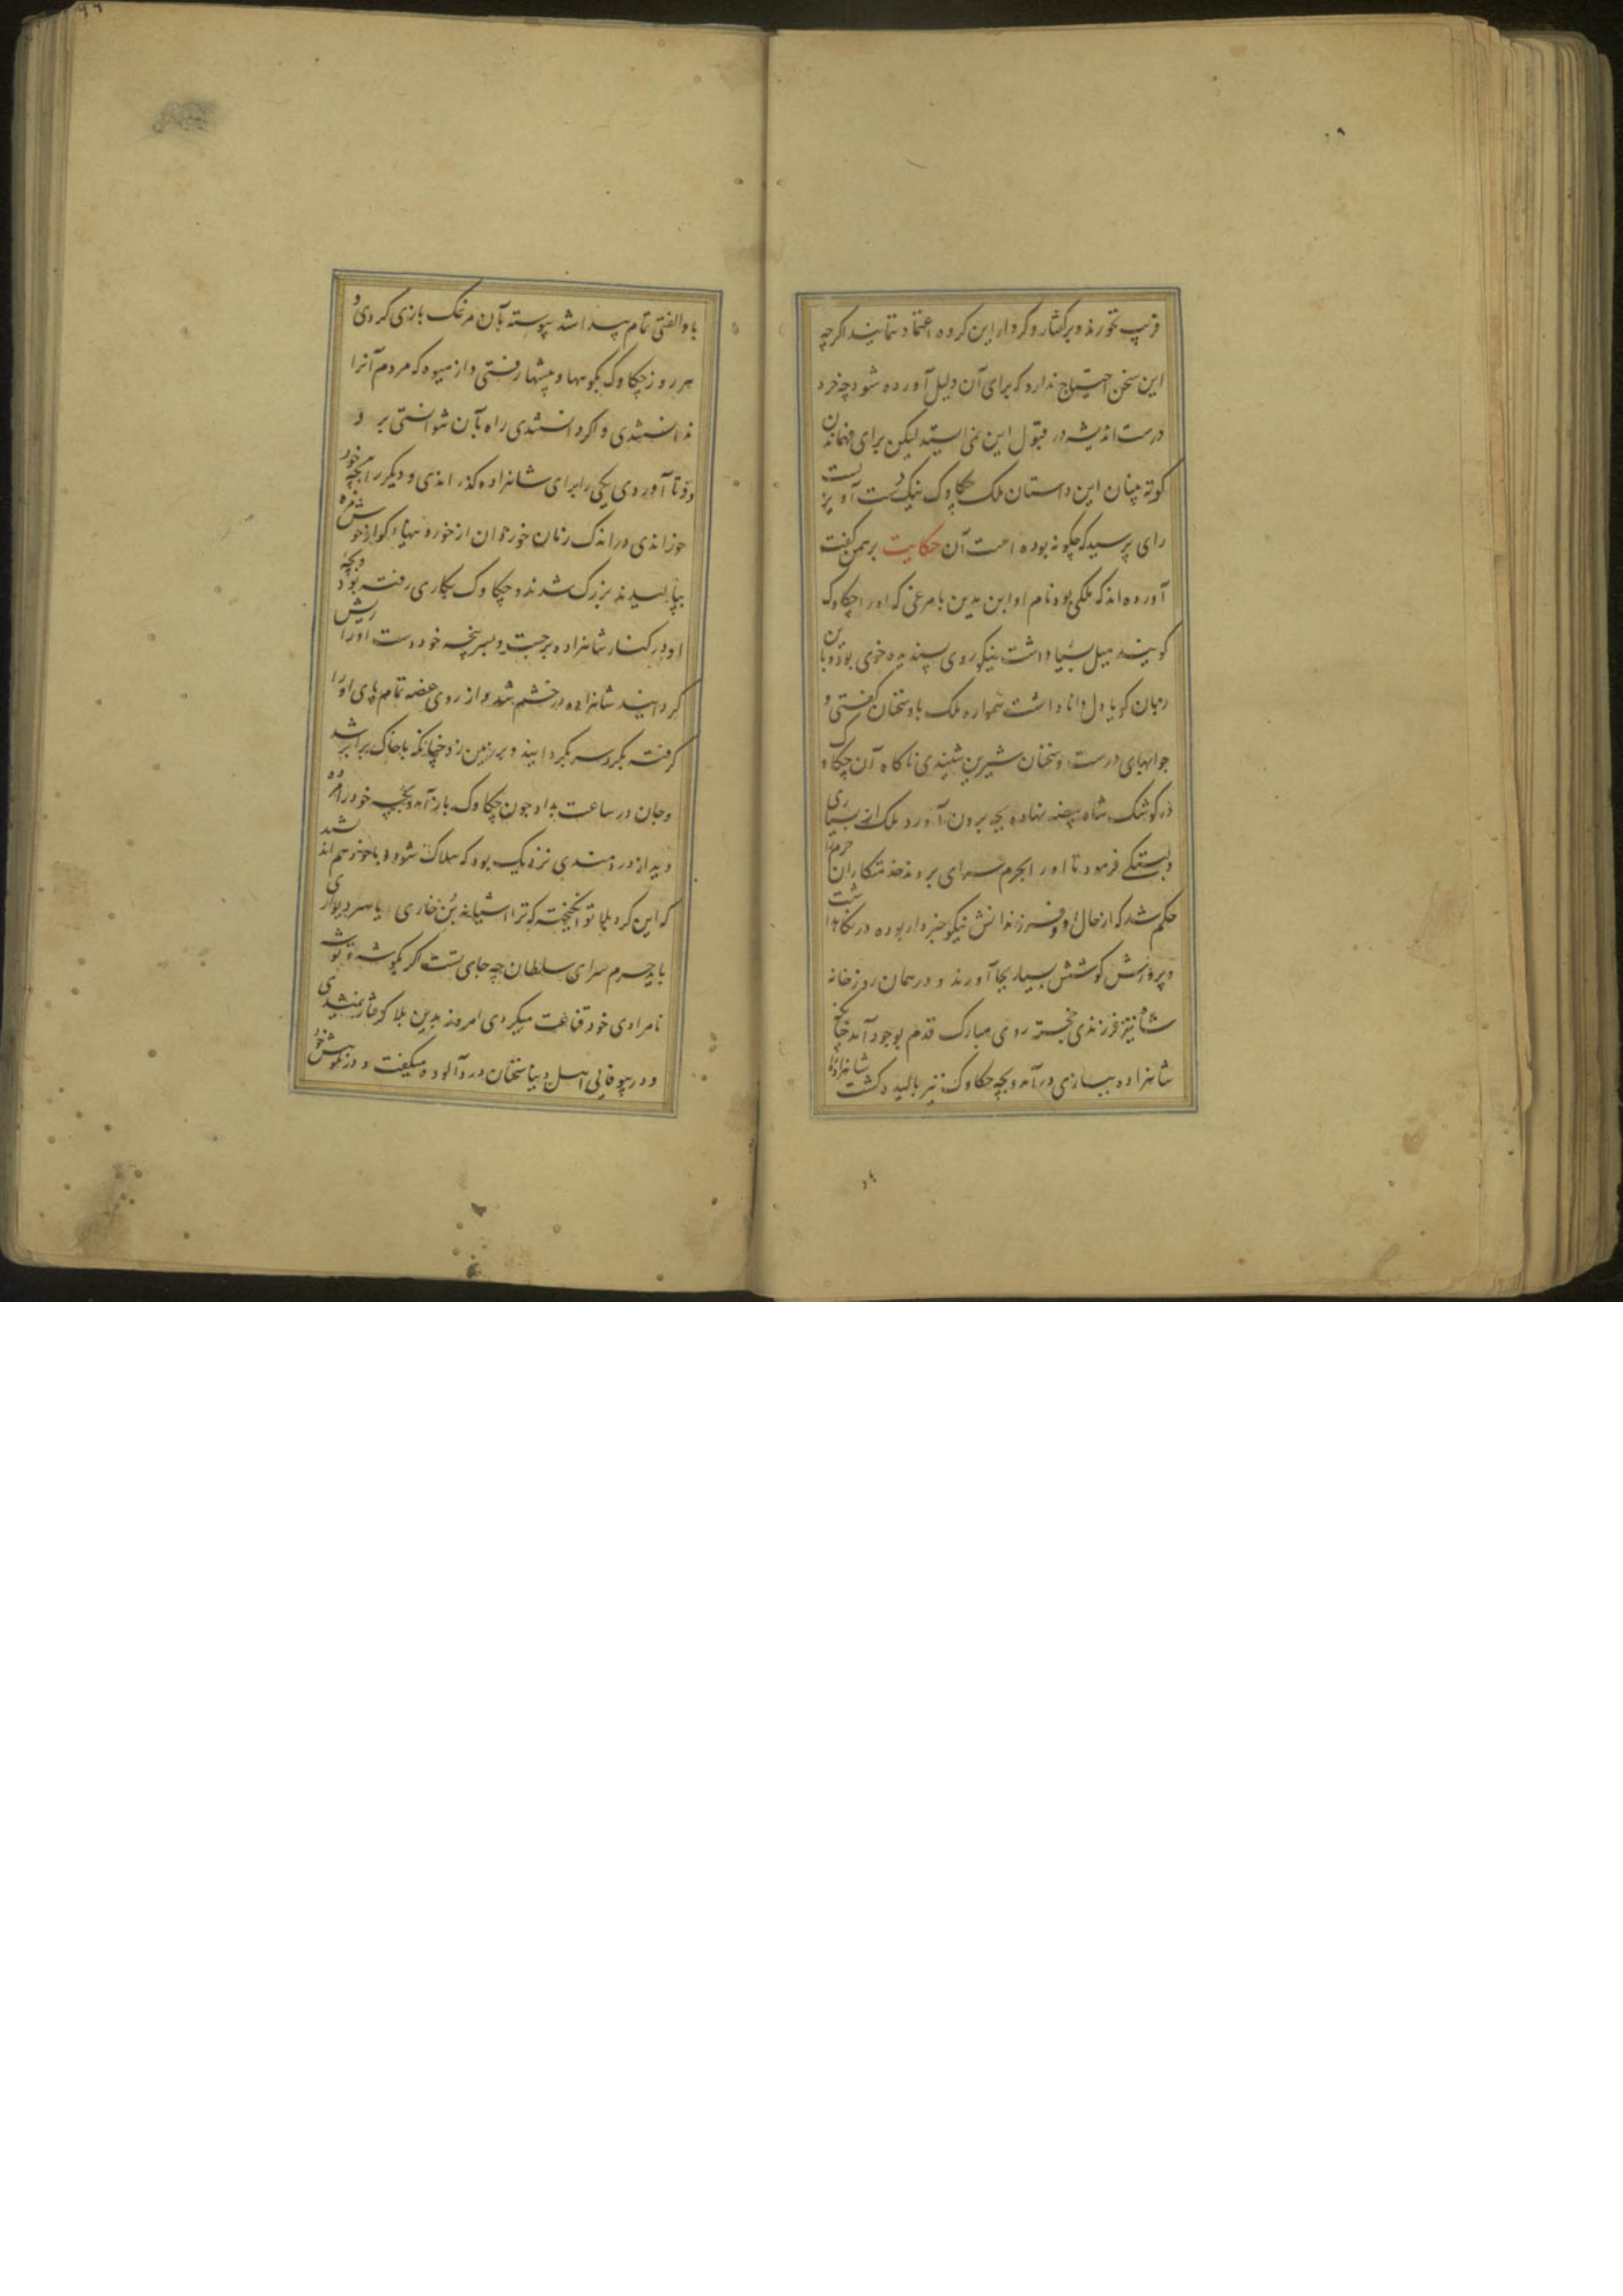 فریب نخورند و بر گفتار و کردار این گروه اعتماد ننمایند اگرچه
این سخن احتیاج ندارد که برای آن دلیل آورده شود چه خرد
درست اندیشه در قبول این نمی ایستد لیکن برای فهماندن
کوته بینان این داستان ملک چکاوک نیک دست آویزیست
رای پرسید که چگونه بوده است آن حکایت برهمن گفت
آورده اند که ملکی بود نام او ابن مدین با مرغی که او را چکاوک
گویند میل بسیار داشت نیکو روی پسندیده خوی بود و با این
زبان گویا دل دانا داشت همواره ملک با او سخنان گفتی و
جوابهای درست و سخنان شیرین شنیدی ناگاه آن چکاوک
در کوشک شاه بیضه نهاده بچه برون آورد ملک از بسیاری
دلبستگی فرمود تا او را بحرم سرای بردند خدمتکاران حرم را
حکم شد که از حال او و فرزندانش نیکو خبردار بوده در نگاهداشت
و پرورش کوشش بسیار بجا آورند و در همان روز خانه
شاه نیز فرزندی خجسته روی مبارک قدم بوجود آمد چنانکه
شاهزاده ببازی درآمد و بچه چکاوک نیز بالیده گشت شاهزاده را
با او الفتی تمام پیدا شد پیوسته بآن مرغک بازی کردی و
هر روز چکاوک بکوهها و بیشها رفتی و از میوه که مردم آنرا
ندانستندی و اگر دانستندی راه بآن نتوانستی برد
دو تا آوردی یکی را برای شاهزاده گذراندی و دیگر را بچه خود
خوراندی در اندک زمان خوردان از خورد میها و گوارا خوش مزه
ببالیدند بزرگ شدند و چکاوک بکاری رفته بود و بچه
او در کنار شاهزاده برجست و بسر پنجه خود دست او را ریش
گردانید شاهزاده در خشم شد و از روی غصه تمام پای او را
گرفته بگرد سر بگردانید و بر زمین زد چنانکه با خاک برابر شد
و جان در ساعت بداد چون چکاوک باز آمد و بچه خود را مرده
دید از دردمندی نزدیک بود که هلاک شود و با خود هم اند شد
که این گرد بلا تو انگیخته که ترا آشیانه بن خاری یا سر دیواری
باید حرم سرای سلطان چه جای تست اگر بگوشه و توشه
نامرادی خود قناعت میکردی امروز بدین بلا گرفتار نمیشدی
و در بیوفایی اهل دنیا سخنان دردآلوده میگفت و در نکوهش خود